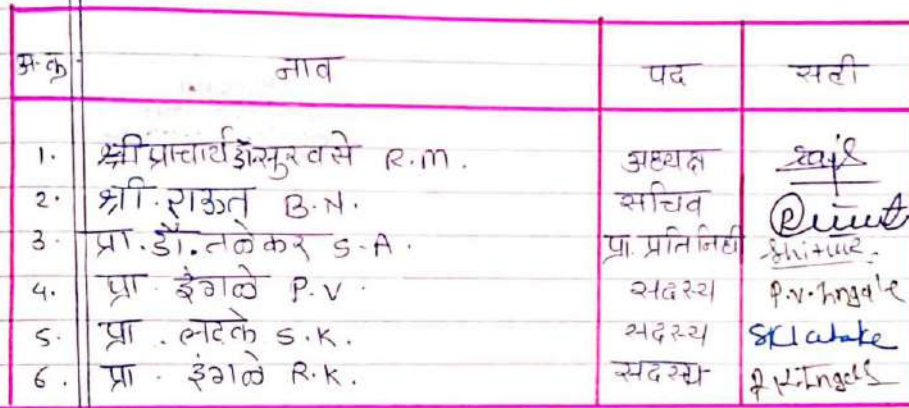 अ.क्र नाव पद सही
1. श्री प्राचार्य डॉ.सुरवसे R.M. अध्यक्ष
2. श्री. राऊत B.N. सचिव
3. प्रा. डॉ. तळेकर S.A. प्रा. प्रतिनिधी
4. प्रा. इंगळे P.V. सदस्य P.V.Ingale
5. प्रा. लटके S.K. सदस्य SKLatake
6. प्रा. इंगळे R.K. सदस्य